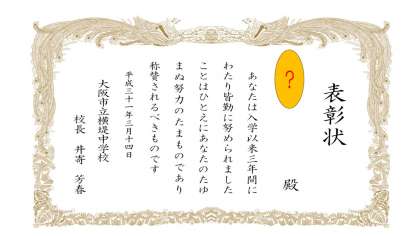 表彰状
?
殿
あなたは入学以来三年間に
わたり皆勤に努められました
ことはひとえにあなたのたゆ
まぬ努力のたまものであり
称賛されるべきものです
平成三十一年三月十四日
大阪市立横堤中学校
校長 井寄 芳春